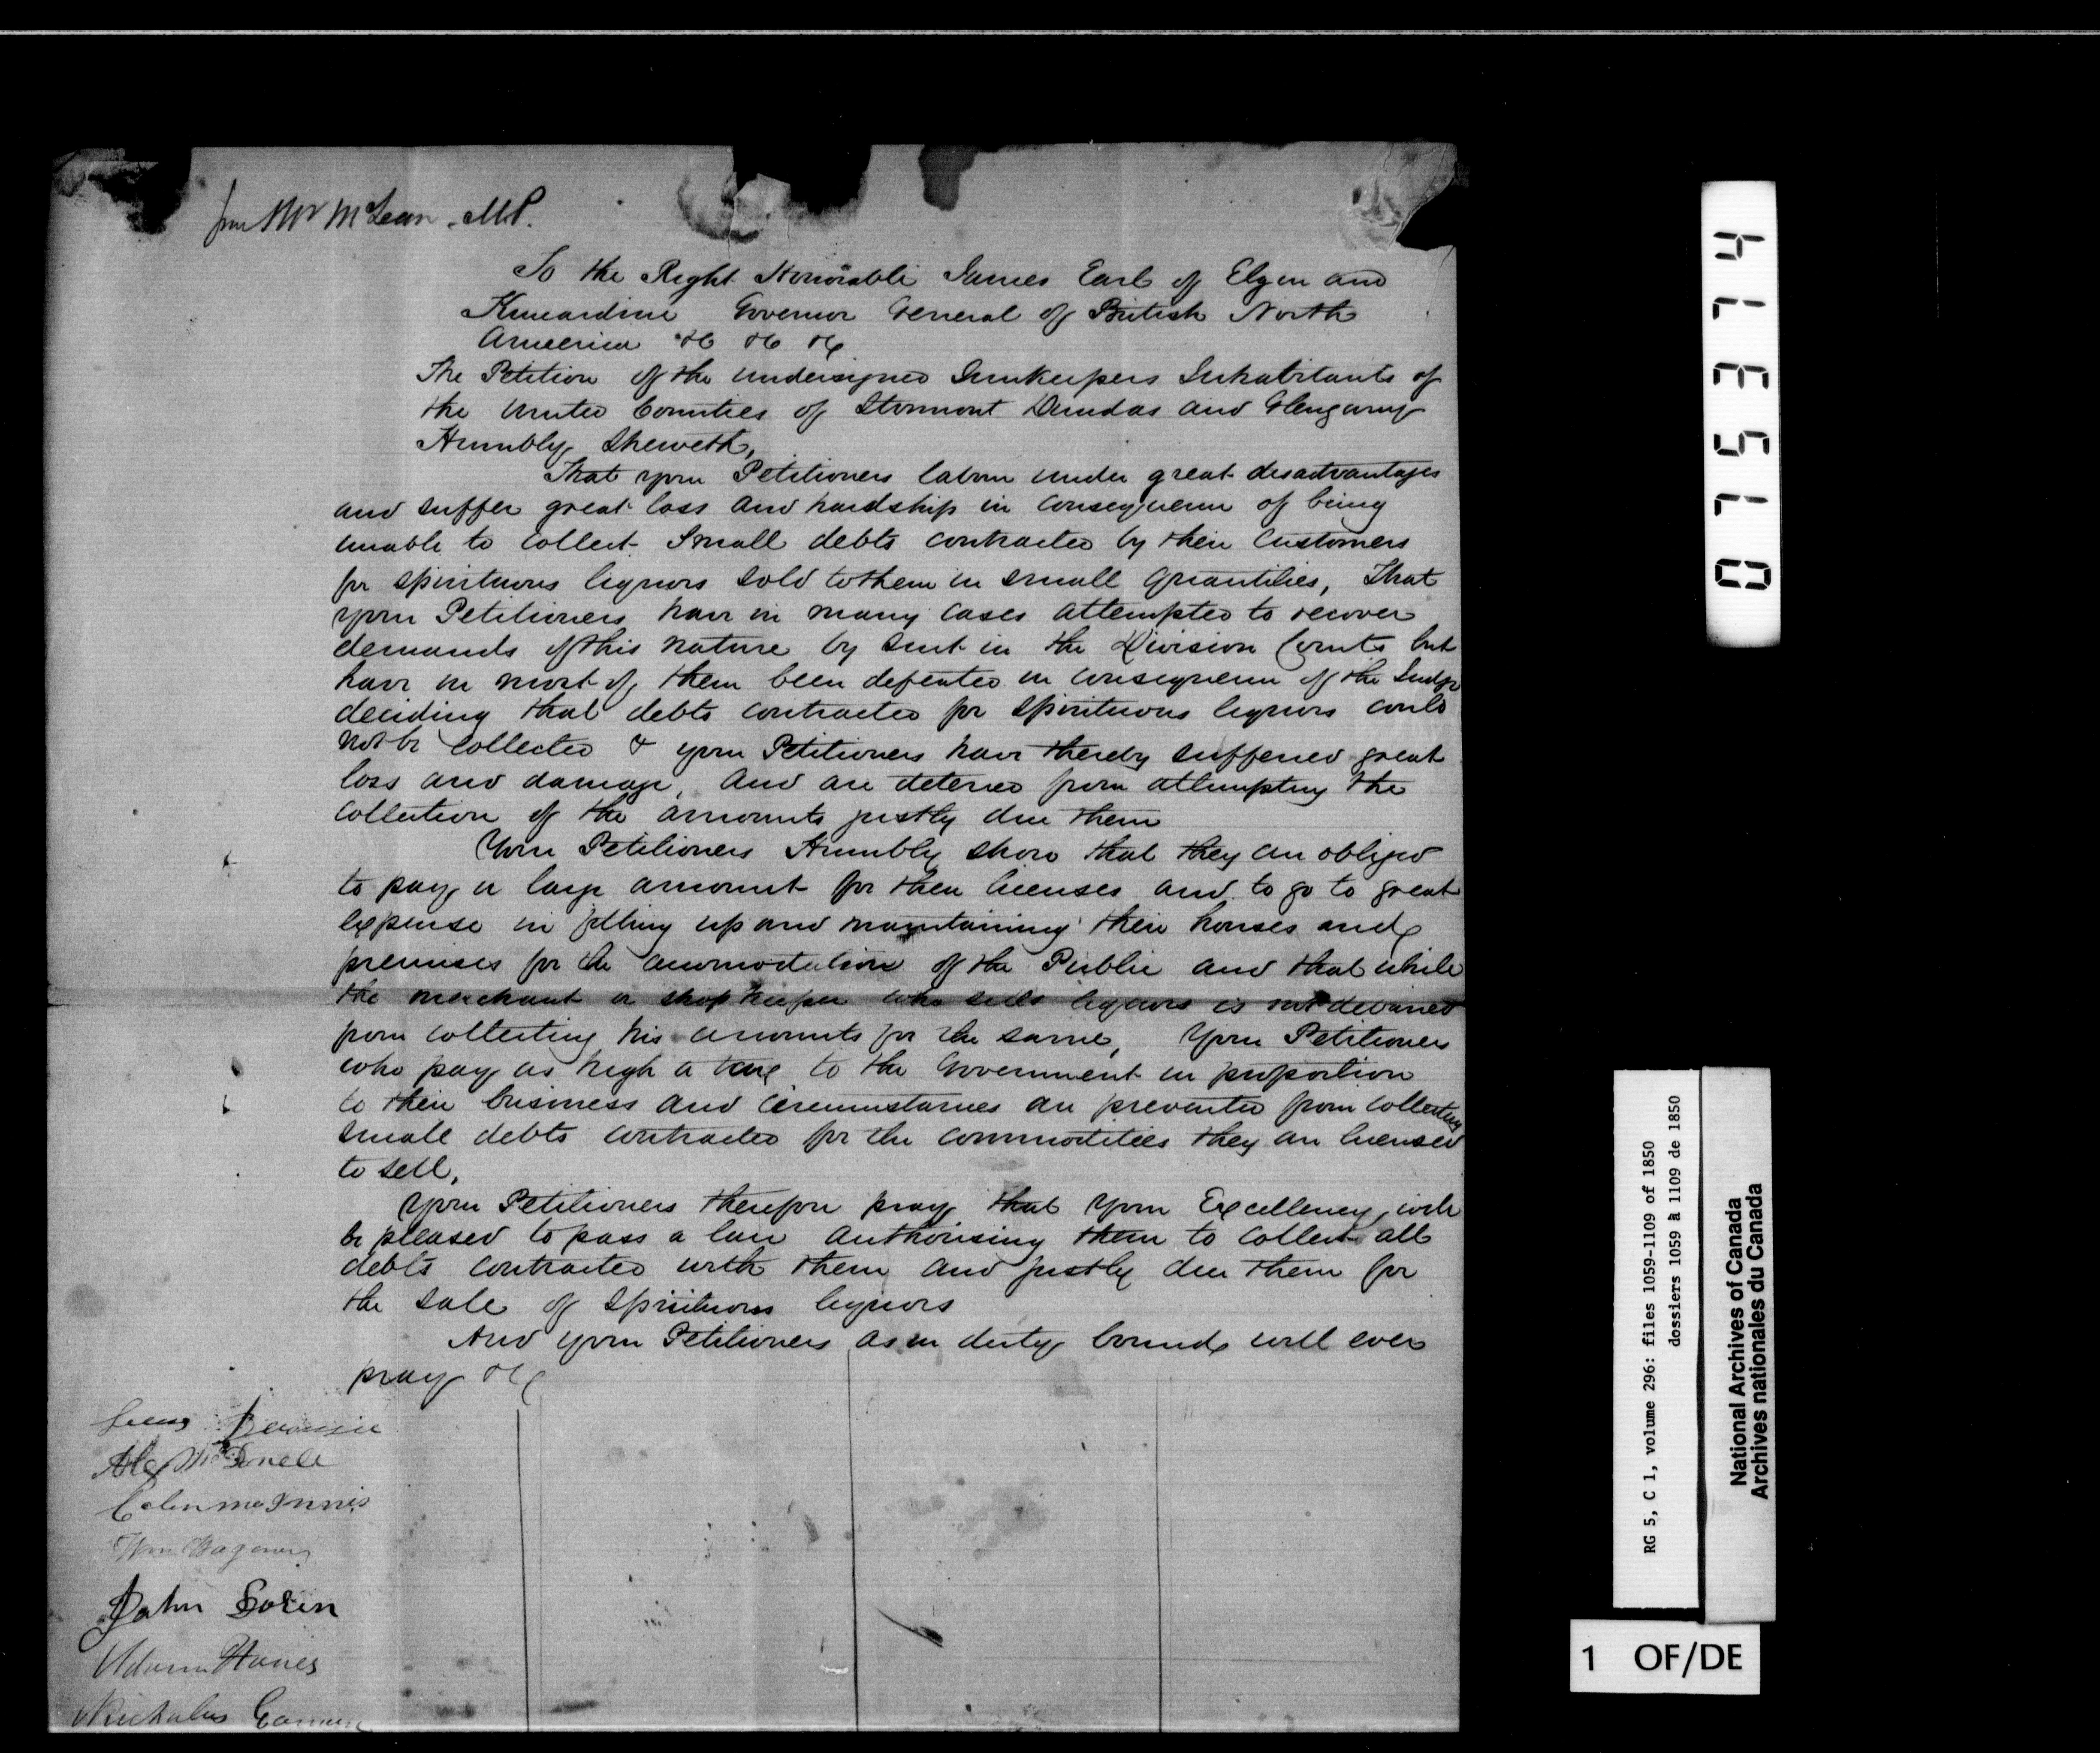 from Mr McLean. M.P.
To the Right Honorable James Earl of Elgin and
Kincardine Governor General of British North
America &c &c &c
The Petition of the undersigned Innkeepers Inhabitants of
the United Counties of Stormont Dundas and Glengarry
Humbly Sheweth,
That your Petitioners labour under great disadvantages
and suffer great loss and hardship in consequence of being
unable to collect Small debts contracted by their Customers
for spirituous liquors sold to them in small quantities, That
your Petitioners have in many cases attempted to recover
demands of this nature by suit in the Division Courts but
have in most of them been defeated in consequence of the Judge
deciding that debts contracted for spirituous liquors could
not be collected & your Petitioners have thereby suffered great
loss and damage, and are deterred from attempting the
collection of the amounts justly due them
Your Petitioners Humbly show that they are obliged
to pay a large amount for their licenses and to go to great
expense in fitting up and maintaining their houses and
premises for the accomodation of the Public and that while
the merchant or shop keeper who sells liquors is not debarred
from collecting his accounts for the same, Your Petitioners
who pay as high a tax to the Government in proportion
to their business and circumstances are prevented from collecting
small debts contracted for the commodities they are licensed
to sell.
Your Petitioners therefore pray that your Excellency will
be pleased to pass a law authorising them to collect all
debts contracted with them and justly due them for
the sale of spirituous liquors
And your Petitioners as in duty bound will ever
pray &c
Alex McDonell
Colin McInnis
Wm Wagoner
John
Adam Hanes
Nicholas
017E5147
RG 5, C 1, volume 296: files 1059-1109 of 1850
dossiers 1059 à 1109 de 1850
National Archives of Canada
Archives nationales du Canada
1 OF/DE